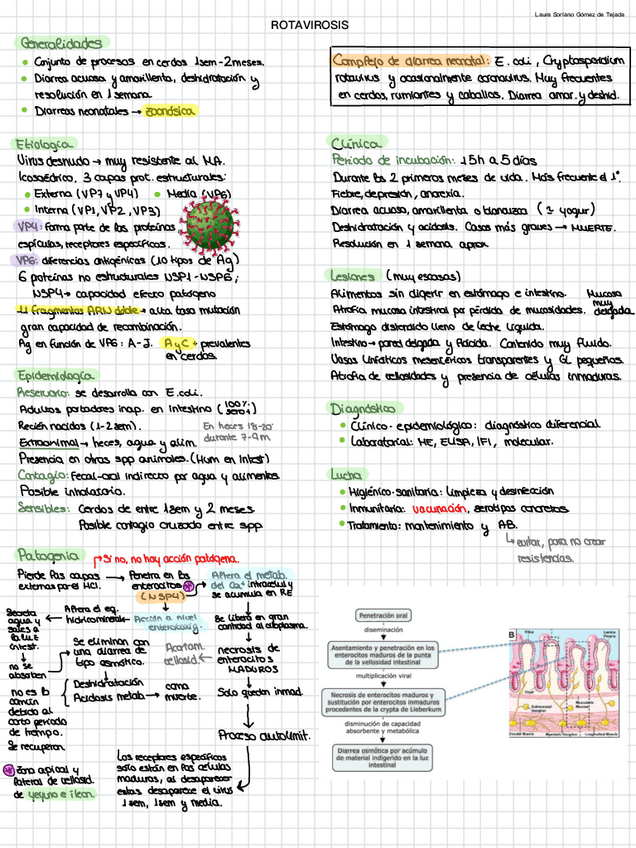 Laura Soriano Gómez de Tejada
ROTAVIROSIS
Generalidades
Conjunto de procesos en cerdos 1sem-2meses.
Diarrea acuosa y amarillenta, deshidratación y
resolución en 1 semana
Diarreas neonatales → zoonósica
Complejo de diarrea neonatal: E. coli, Cryptosporidium
rotavirus y ocasionalmente coronavirus. Muy frecuentes
en cerdos, rumiantes y caballos. Diarrea amar. y deshid.
Etiología
Virus desnudo → muy resistente al MA.
Icosaédrico. 3 capas prot. estructurales:
Externa (VP7 y VP4)
Media (VP6)
Interna (VP1, VP2, VP3)
VP4: forma parte de las proteínas
espículas, receptores específicos.
VP6: diferencias antigénicas (10 tipos de Ag)
6 proteínas no estructurales NSP1-NSP6;
NSP4 → capacidad efecto patógeno
11 fragmentos ARN doble → alta tasa mutación
gran capacidad de recombinación.
Ag en función de VP6: A-J. A y C + prevalentes
en cerdos
Epidemiología
Reservorio: se desarrolla con E. coli.
Adultos portadores inap. en Intestino (100% sero+)
Recién nacidos (1-2sem).
En heces 18-20
durante 7-9m
Extraanimal → heces, agua y alim.
Presencia en otras spp animales. (Hum en Intest)
Contagio: Fecal-oral indirecto por agua y alimentos
Posible inhalatorio.
Sensibles: Cerdos de entre 1sem y 2 meses
Posible contagio cruzado entre spp
Clínica
Periodo de incubación: 15h a 5 días
Durante los 2 primeros meses de vida. Más frecuente el 1º.
Fiebre, depresión, anorexia.
Diarrea acuosa, amarillenta o blancuzca (yogur)
Deshidratación y acidosis. Casos más graves → MUERTE.
Resolución en 1 semana aprox.
Lesiones (muy escasas)
Alimentos sin digerir en estómago e intestino.
Mucosa
muy
delgada
Atrofia mucosa intestinal por pérdida de mucosidades.
Estómago distendido lleno de leche líquida.
Intestino → pared delgada y flácida. Contenido muy fluido.
Vasos linfáticos mesentéricos transparentes y GL pequeños.
Atrofia de vellosidades y presencia de células inmaduras.
Diagnóstico
Clínico-epidemiológico: diagnóstico diferencial
Laboratorial: ME, ELISA, IFI, molecular.
Lucha
Higiénico-sanitaria: limpieza y desinfección
Inmunitaria: vacunación, serotipos concretos
Tratamiento: mantenimiento y AB.
evitar, para no crear
resistencias.
Patogenia
Si no, no hay acción patógena.
Pierde las capas
externas por el HCl.
Penetra en los
enterocitos
(NSP4)
Altera el metab.
del Ca⁺² intracelul y
se acumula en RE
Se libera en gran
cantidad al citoplasma.
necrosis de
enterocitos
MADUROS
Acortam.
vellosid.
Solo quedan inmad.
Proceso autolimit.
Acción a nivel
enterocitos
Altera el eq.
hidromineral
Secreta
agua y
sales a
la luz
intest.
no se
absorben
Se eliminan con
una diarrea de
tipo osmótica.
Deshidratación
Acidosis metab → coma
muerte.
no es lo
común
debido al
corto periodo
de tiempo.
Se recuperan.
Zona apical y
lateral de vellosid.
de yeyuno e íleon.
Los receptores específicos
solo están en las células
maduras, al desaparecer
estas desaparece el virus
1sem, 1sem y media.
Penetración oral
diseminación
Asentamiento y penetración en los
enterocitos maduros de la punta
de la vellosidad intestinal
multiplicación viral
Necrosis de enterocitos maduros y
sustitución por enterocitos inmaduros
procedentes de la crypta de Lieberkum
disminución de capacidad
absorbente y metabólica
Diarrea osmótica por acúmulo
de material indigerido en la luz
intestinal
B
Villus
Crypt